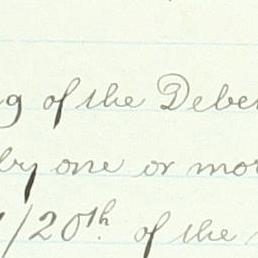 g of the Deben
by one or mor
/20th. of the